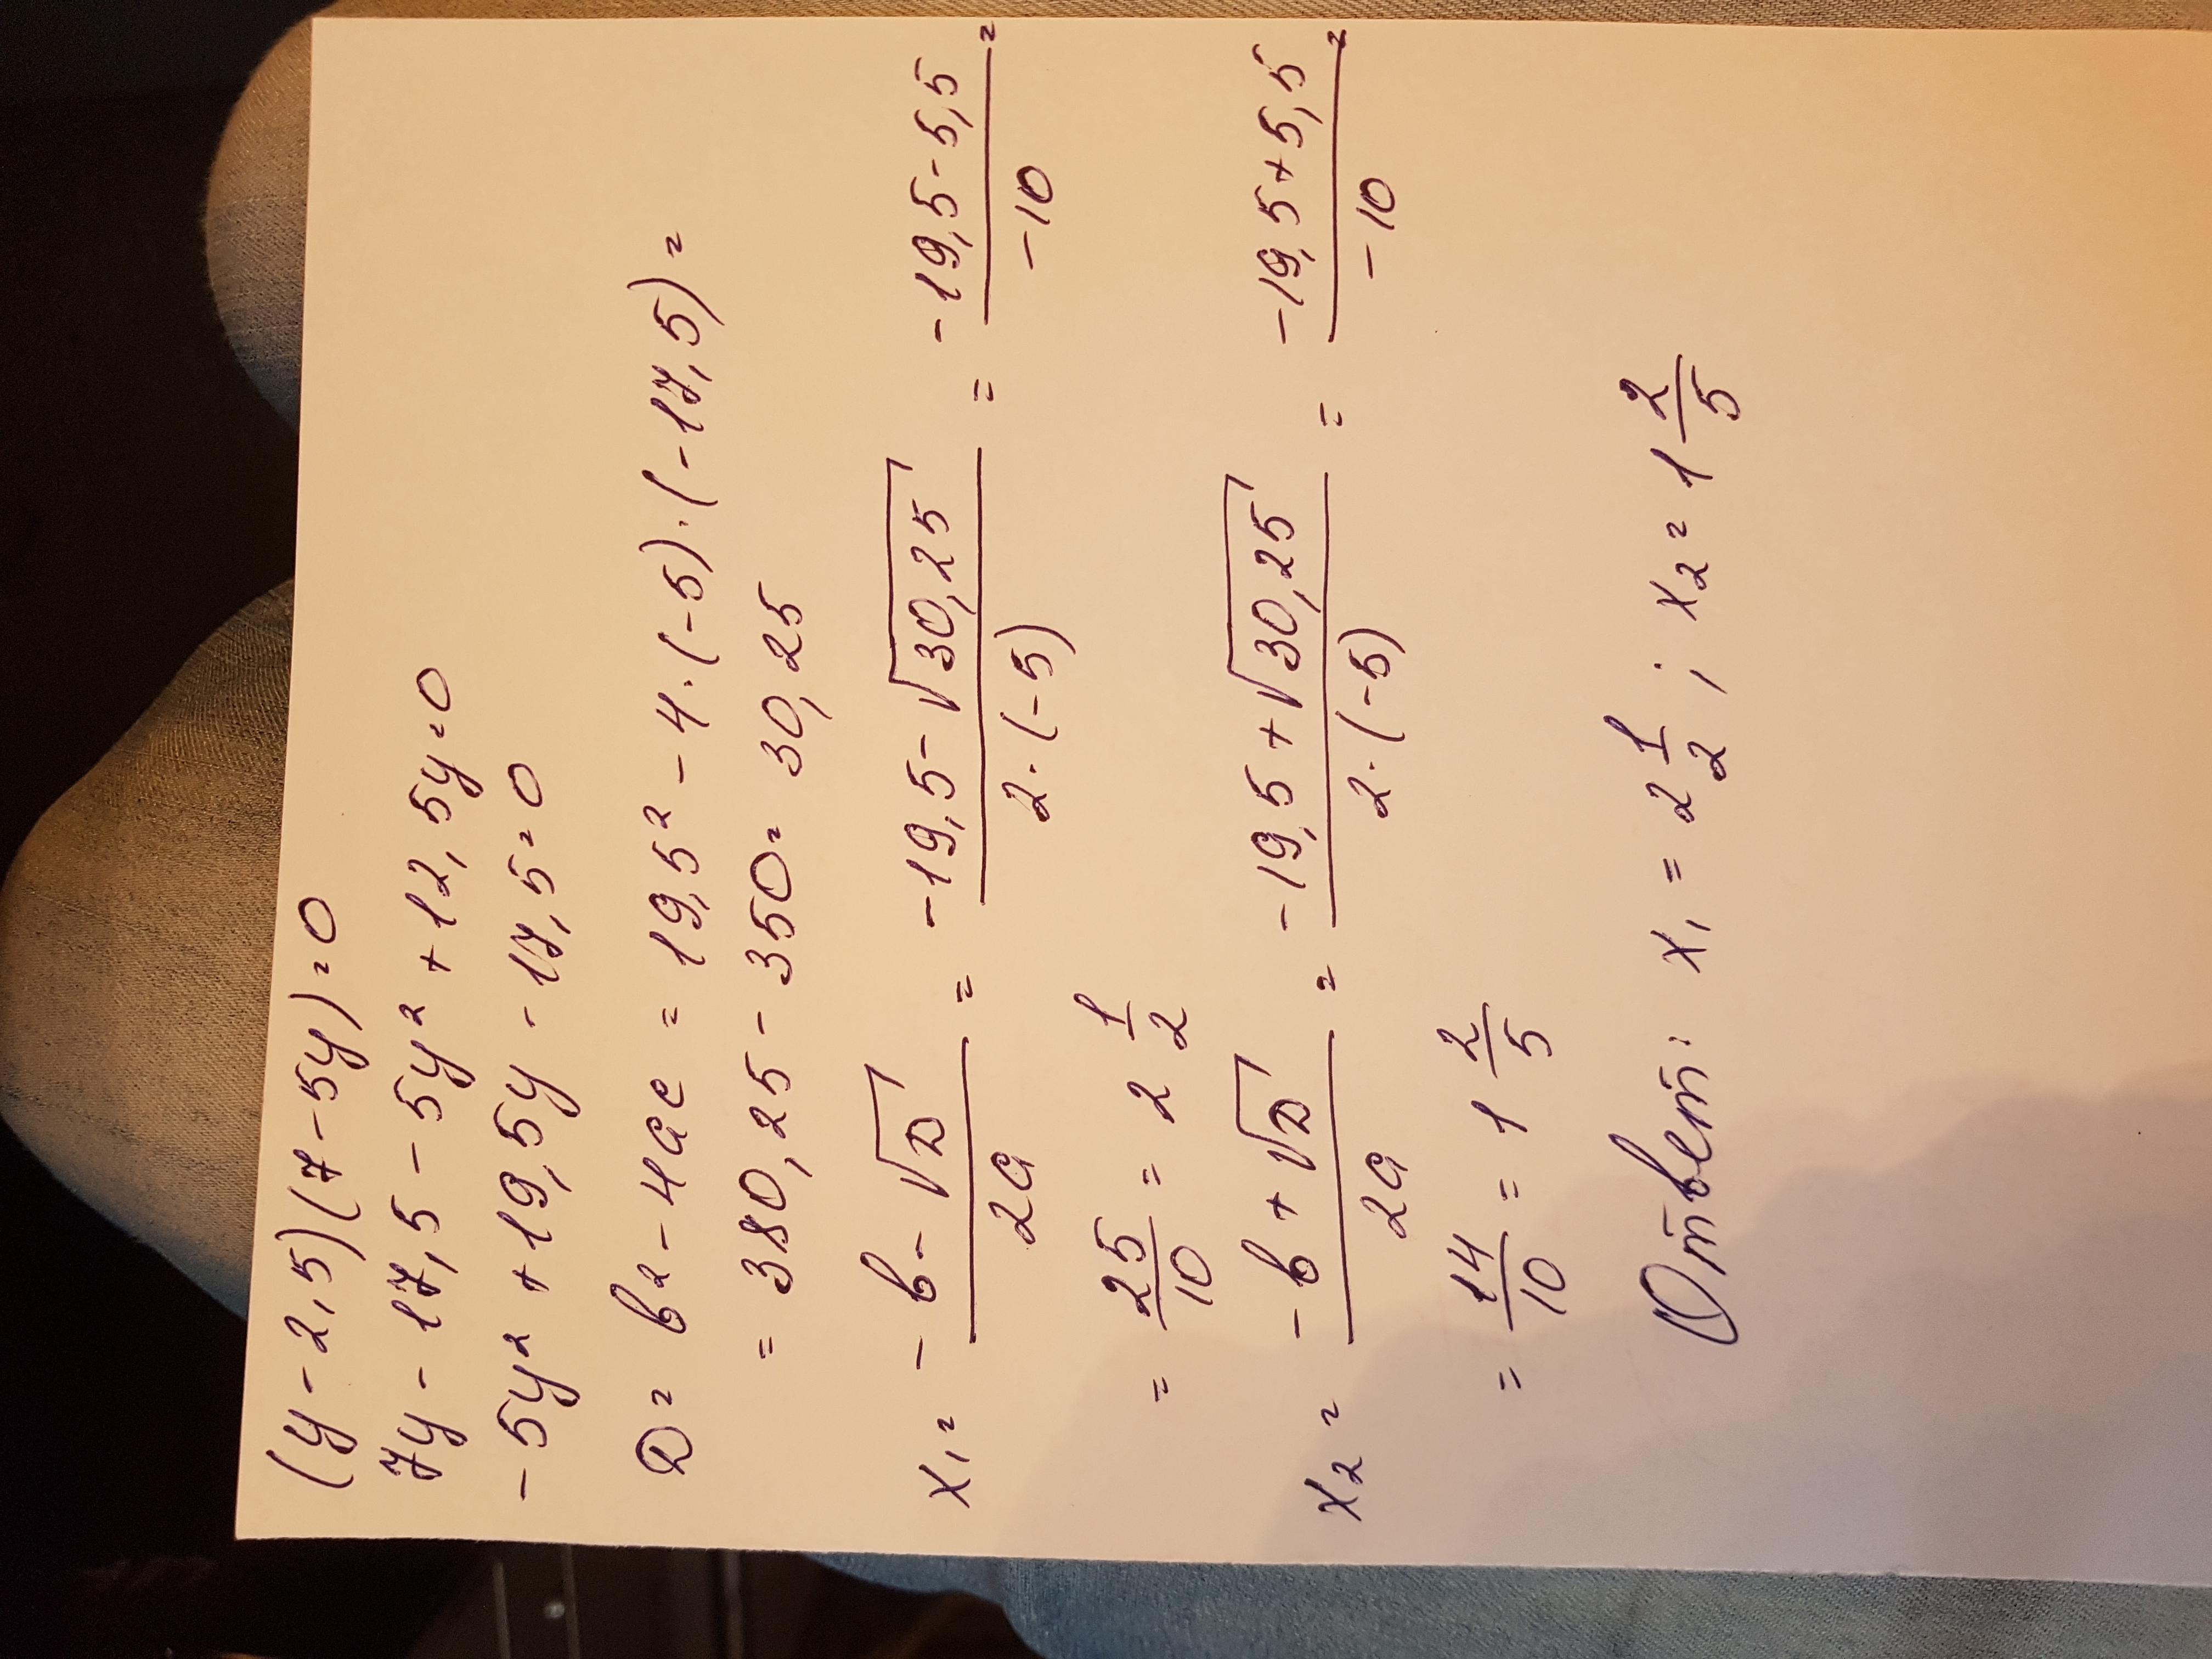 (y - 2,5)(7 - 5y) = 0
7y - 17,5 - 5y² + 12,5y = 0
-5y² + 19,5y - 17,5 = 0
D = b² - 4ac = 19,5² - 4·(-5)·(-17,5) =
= 380,25 - 350 = 30,25
x₁ = (-b - √D)/(2a) = (-19,5 - √30,25)/(2·(-5)) = (-19,5 - 5,5)/(-10) =
= 25/10 = 2 1/2
x₂ = (-b + √D)/(2a) = (-19,5 + √30,25)/(2·(-5)) = (-19,5 + 5,5)/(-10) =
= 14/10 = 1 2/5
Ответ: x₁ = 2 1/2 ; x₂ = 1 2/5